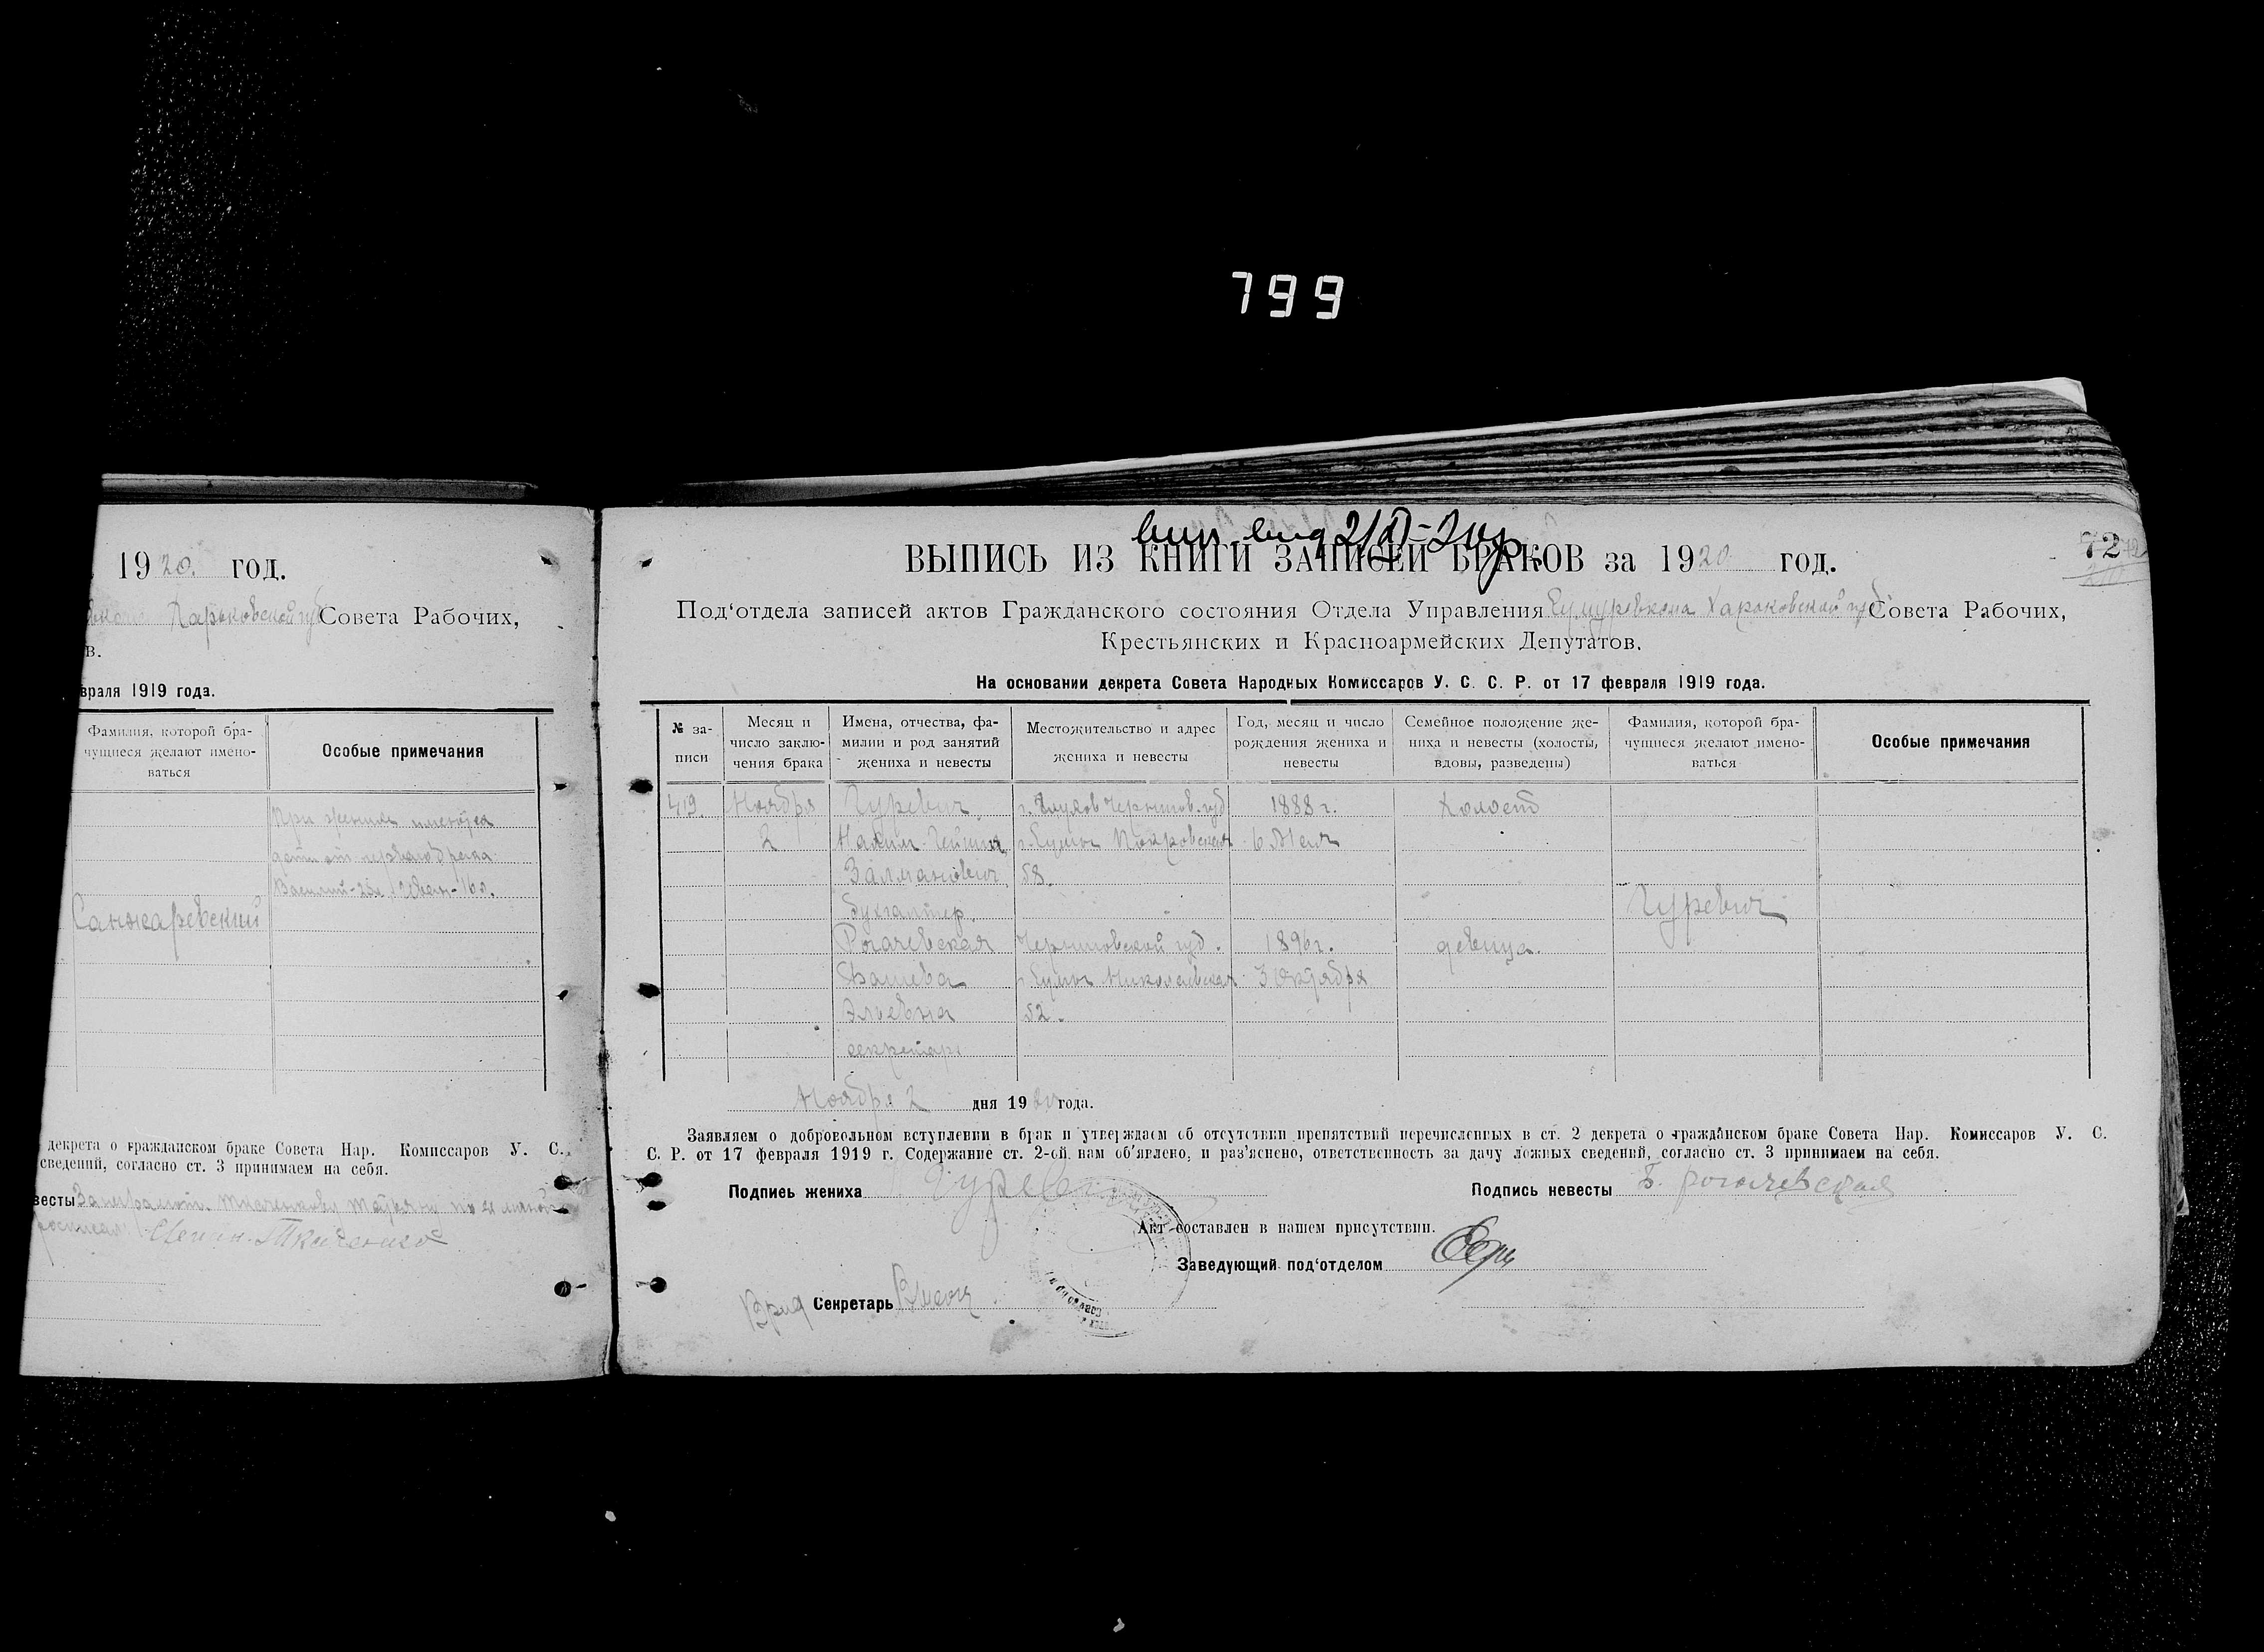 799
1920 год.
Харьковской губ Совета Рабочих,
в.
враля 1919 года.
Фамилия, которой бра-
чущиеся желают имено-
ваться
Особые примечания
При жених имеются
дети от первого брака
Василий - Иван - 16 л.
Санжаревский
декрета о гражданском браке Совета Нар. Комиссаров У. С.
сведений, согласно ст. 3 принимаем на себя.
весты
Ткаченко
72
ВЫПИСЬ ИЗ КНИГИ ЗАПИСЕЙ БРАКОВ за 1920 год.
Под'отдела записей актов Гражданского состояния Отдела Управления Сумуревкома Харьковской губ Совета Рабочих,
Крестьянских и Красноармейских Депутатов.
На основании декрета Совета Народных Комиссаров У. С. С. Р. от 17 февраля 1919 года.
№ за-
писи
Месяц и
число заклю-
чения брака
Имена, отчества, фа-
милии и род занятий
жениха и невесты
Местожительство и адрес
жениха и невесты
Год, месяц и число
рождения жениха и
невесты
Семейное положение же-
ниха и невесты (холосты,
вдовы, разведены)
Фамилия, которой бра-
чущиеся желают имено-
ваться
Особые примечания
419. Ноября Гуревич г. Глухов Чернигов. губ 1888 г. Холост
2 г. Сумы Покровская 6 Мая
Залманович 58.
бухгалтер. Гуревич
Рогачевская Черниговской губ. 1896 г. девица.
г. Сумы Николаевская 3 Октября
Элевна 52.
секретарь
Ноября 2 дня 1920 года.
Заявляем о добровольном вступлении в брак и утверждаем об отсутствии препятствий перечисленных в ст. 2 декрета о гражданском браке Совета Нар. Комиссаров У. С.
С. Р. от 17 февраля 1919 г. Содержание ст. 2-ой нам об'явлено, и раз'яснено, ответственность за дачу ложных сведений, согласно ст. 3 принимаем на себя.
Подпись жениха Гуревич Подпись невесты Б. Рогачевская
Акт составлен в нашем присутствии.
Заведующий под'отделом
Врид Секретарь